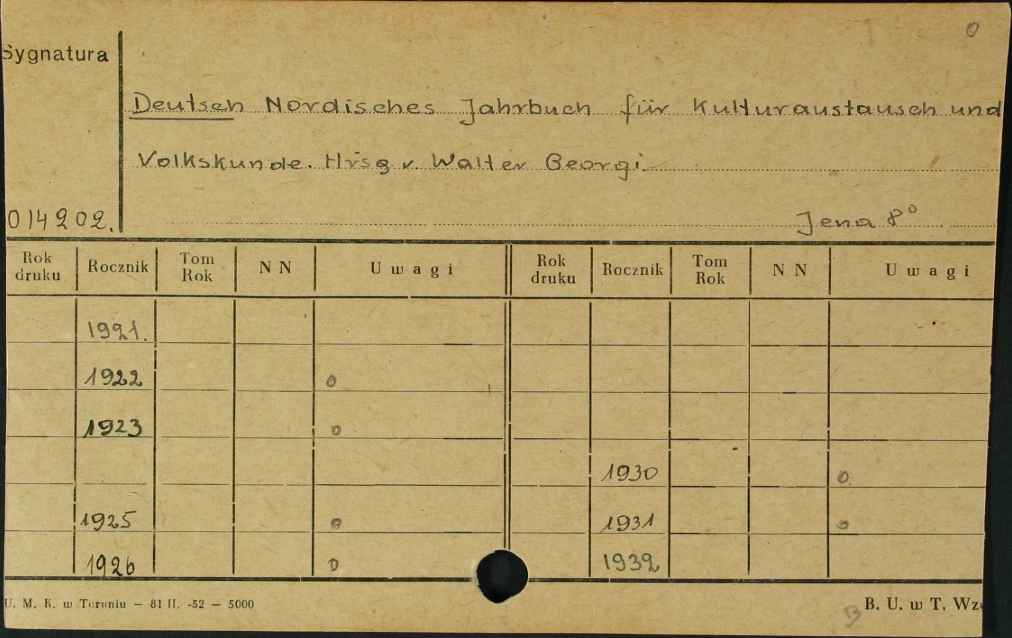 0
Sygnatura
Deutsch Nordisches Jahrbuch für Kulturaustausch und
Volkskunde. Hrsg v. Walter Georgi.
014202.
Jena 8°
Rok druku Rocznik Tom Rok N N Uwagi Rok druku Rocznik Tom Rok N N Uwagi
1921.
1922 0
1923 0
1930 0
1925 0 1931 0
1926 0 1932
U. M. K. w Toruniu – 81 II. -52 – 5000
B. U. w T.
B